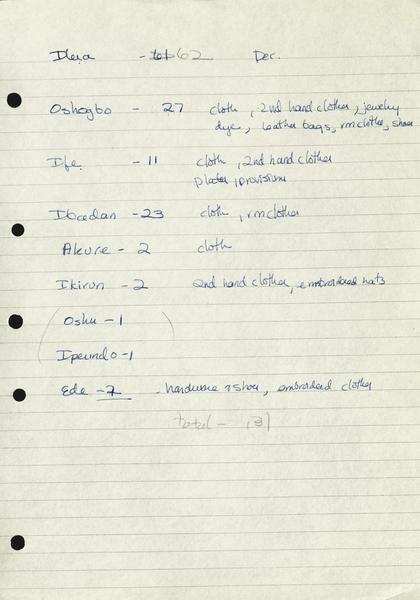 Ilesa - 62 Dec.
Oshogbo - 27 cloth, 2nd hand clothes, jewelry
dye, leather bags, rm clothes, shoes
Ife - 11 cloth, 2nd hand clothes
plates, provisions
Ibadan - 23 cloth, rm clothes
Akure - 2 cloth
Ikirun - 2 2nd hand clothes, embroidered hats
Oshu - 1
Ipeundo - 1
Ede - 7 - hardware, shoes, embroidered clothes
total - 131